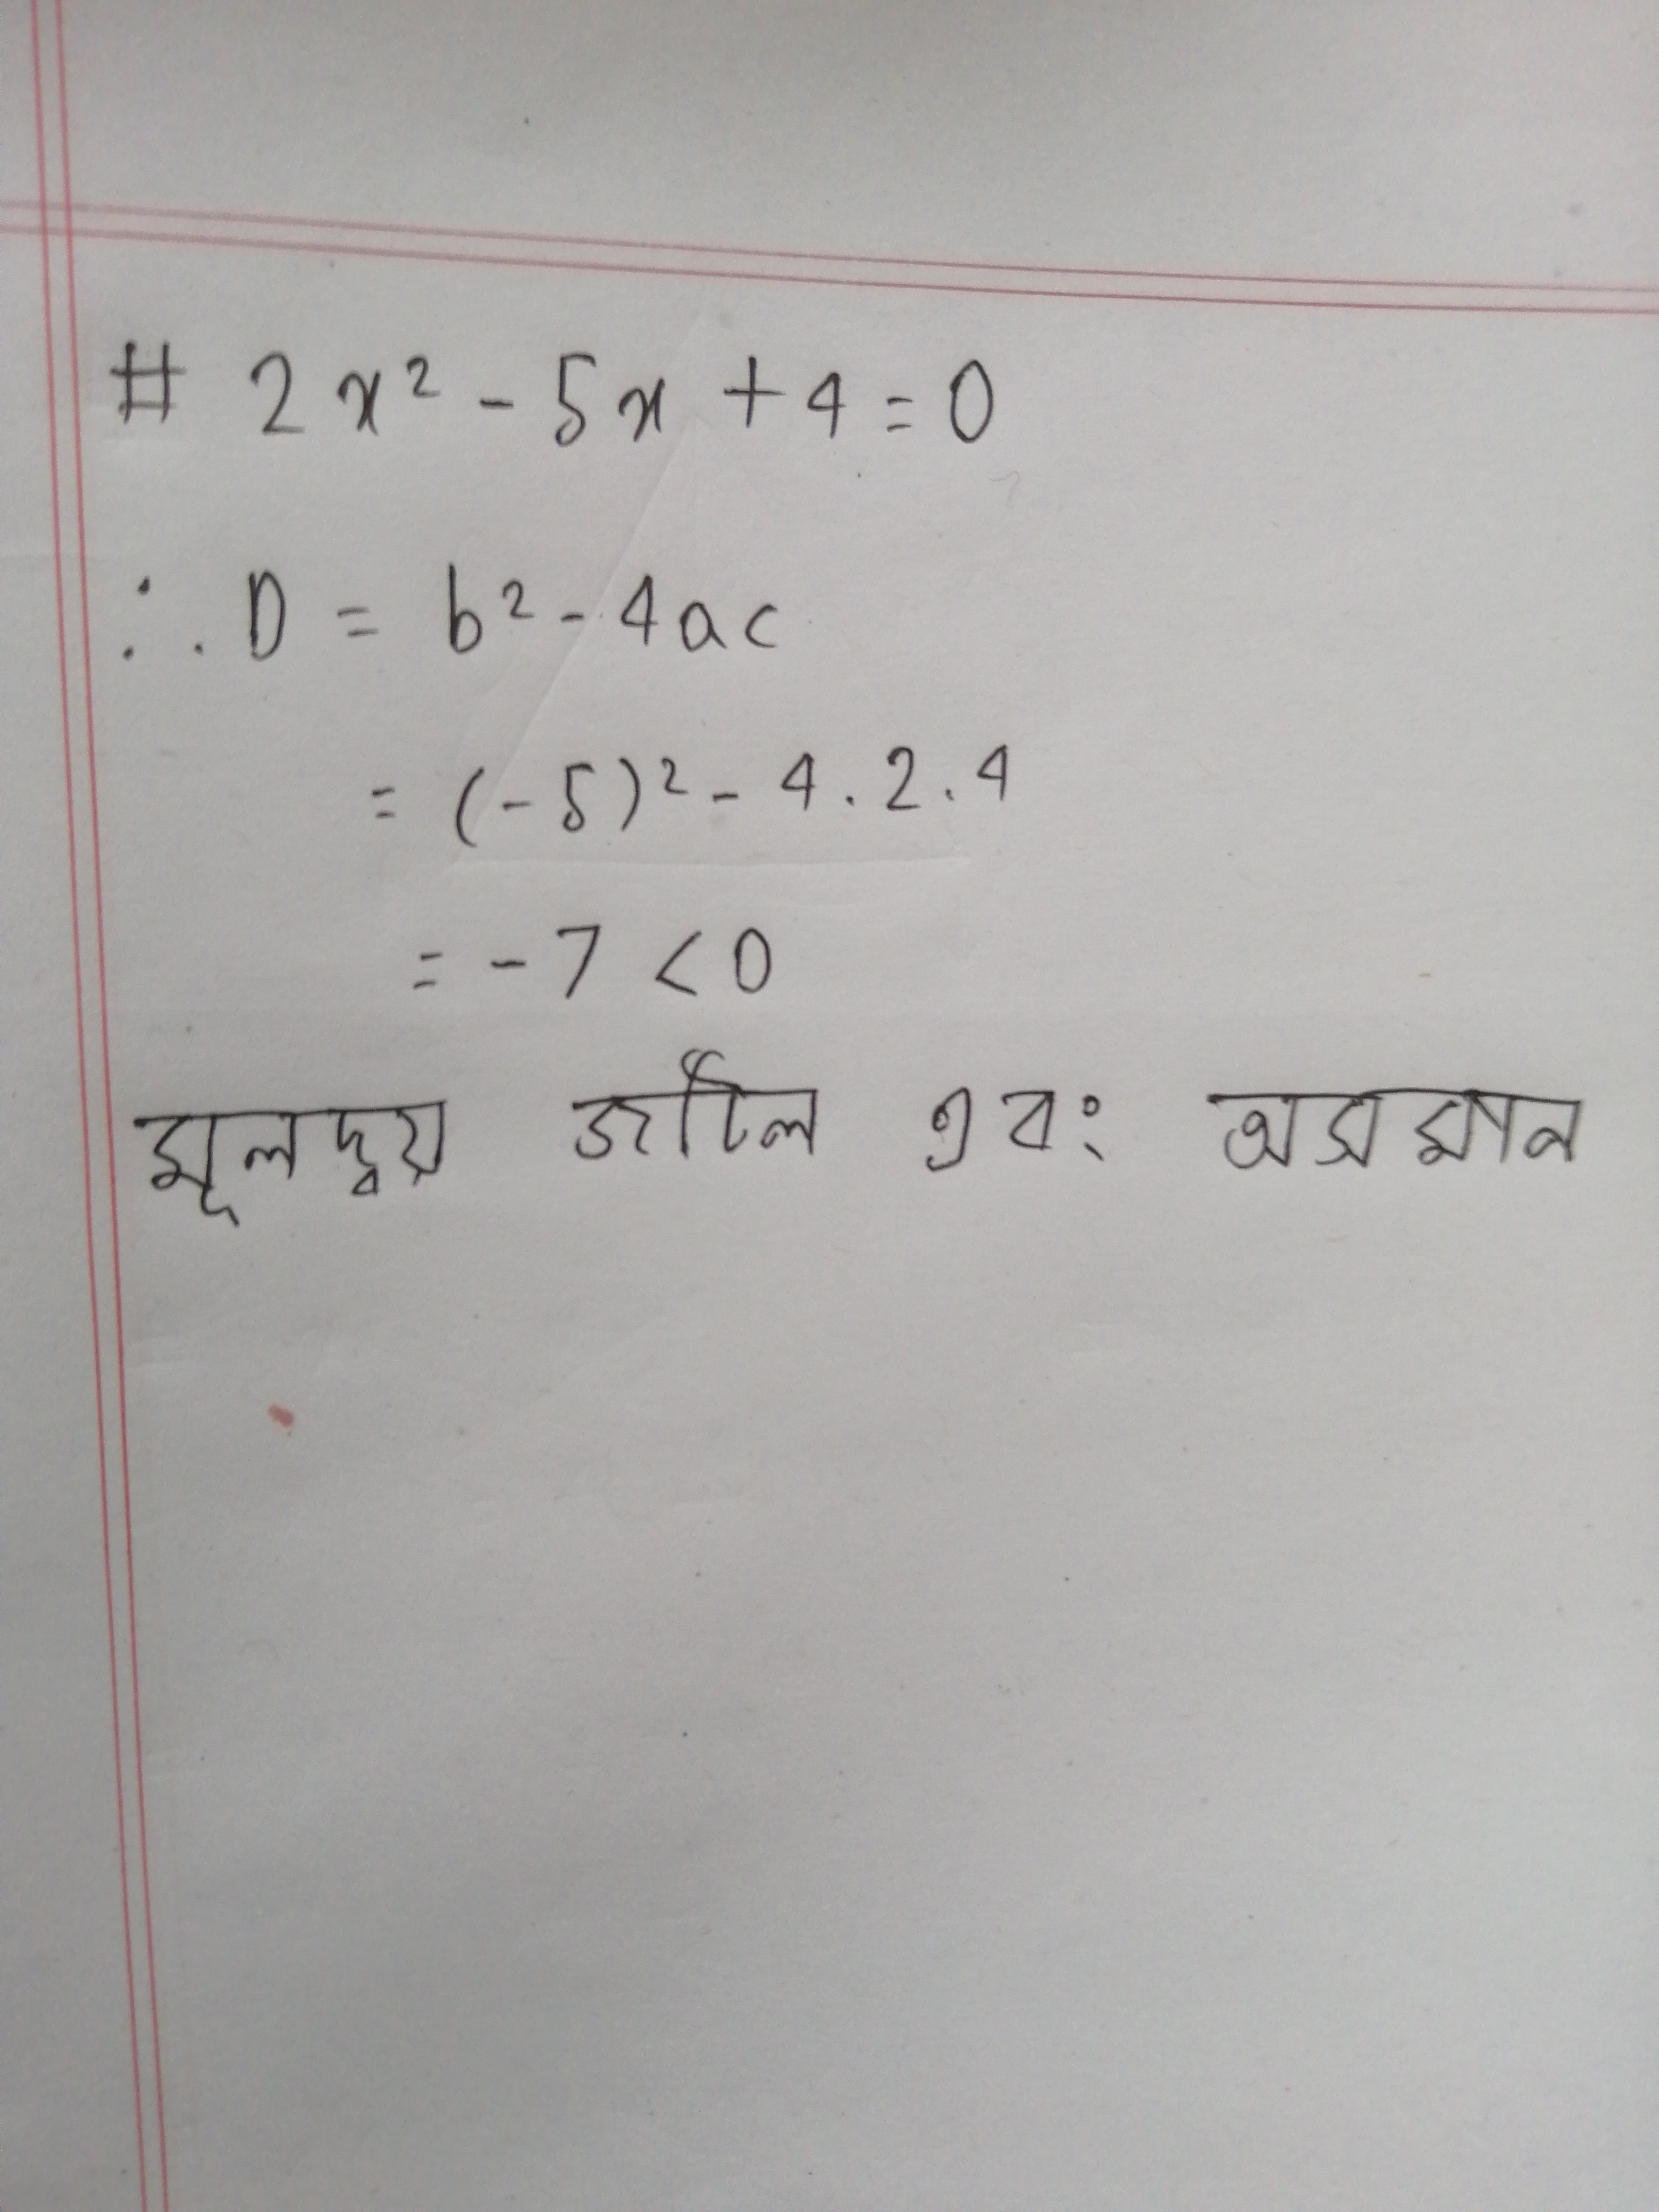 # 2x² - 5x + 4 = 0
∴ D = b² - 4ac
= (-5)² - 4.2.4
= -7 < 0
মূলদ্বয় জটিল এবং অসমান